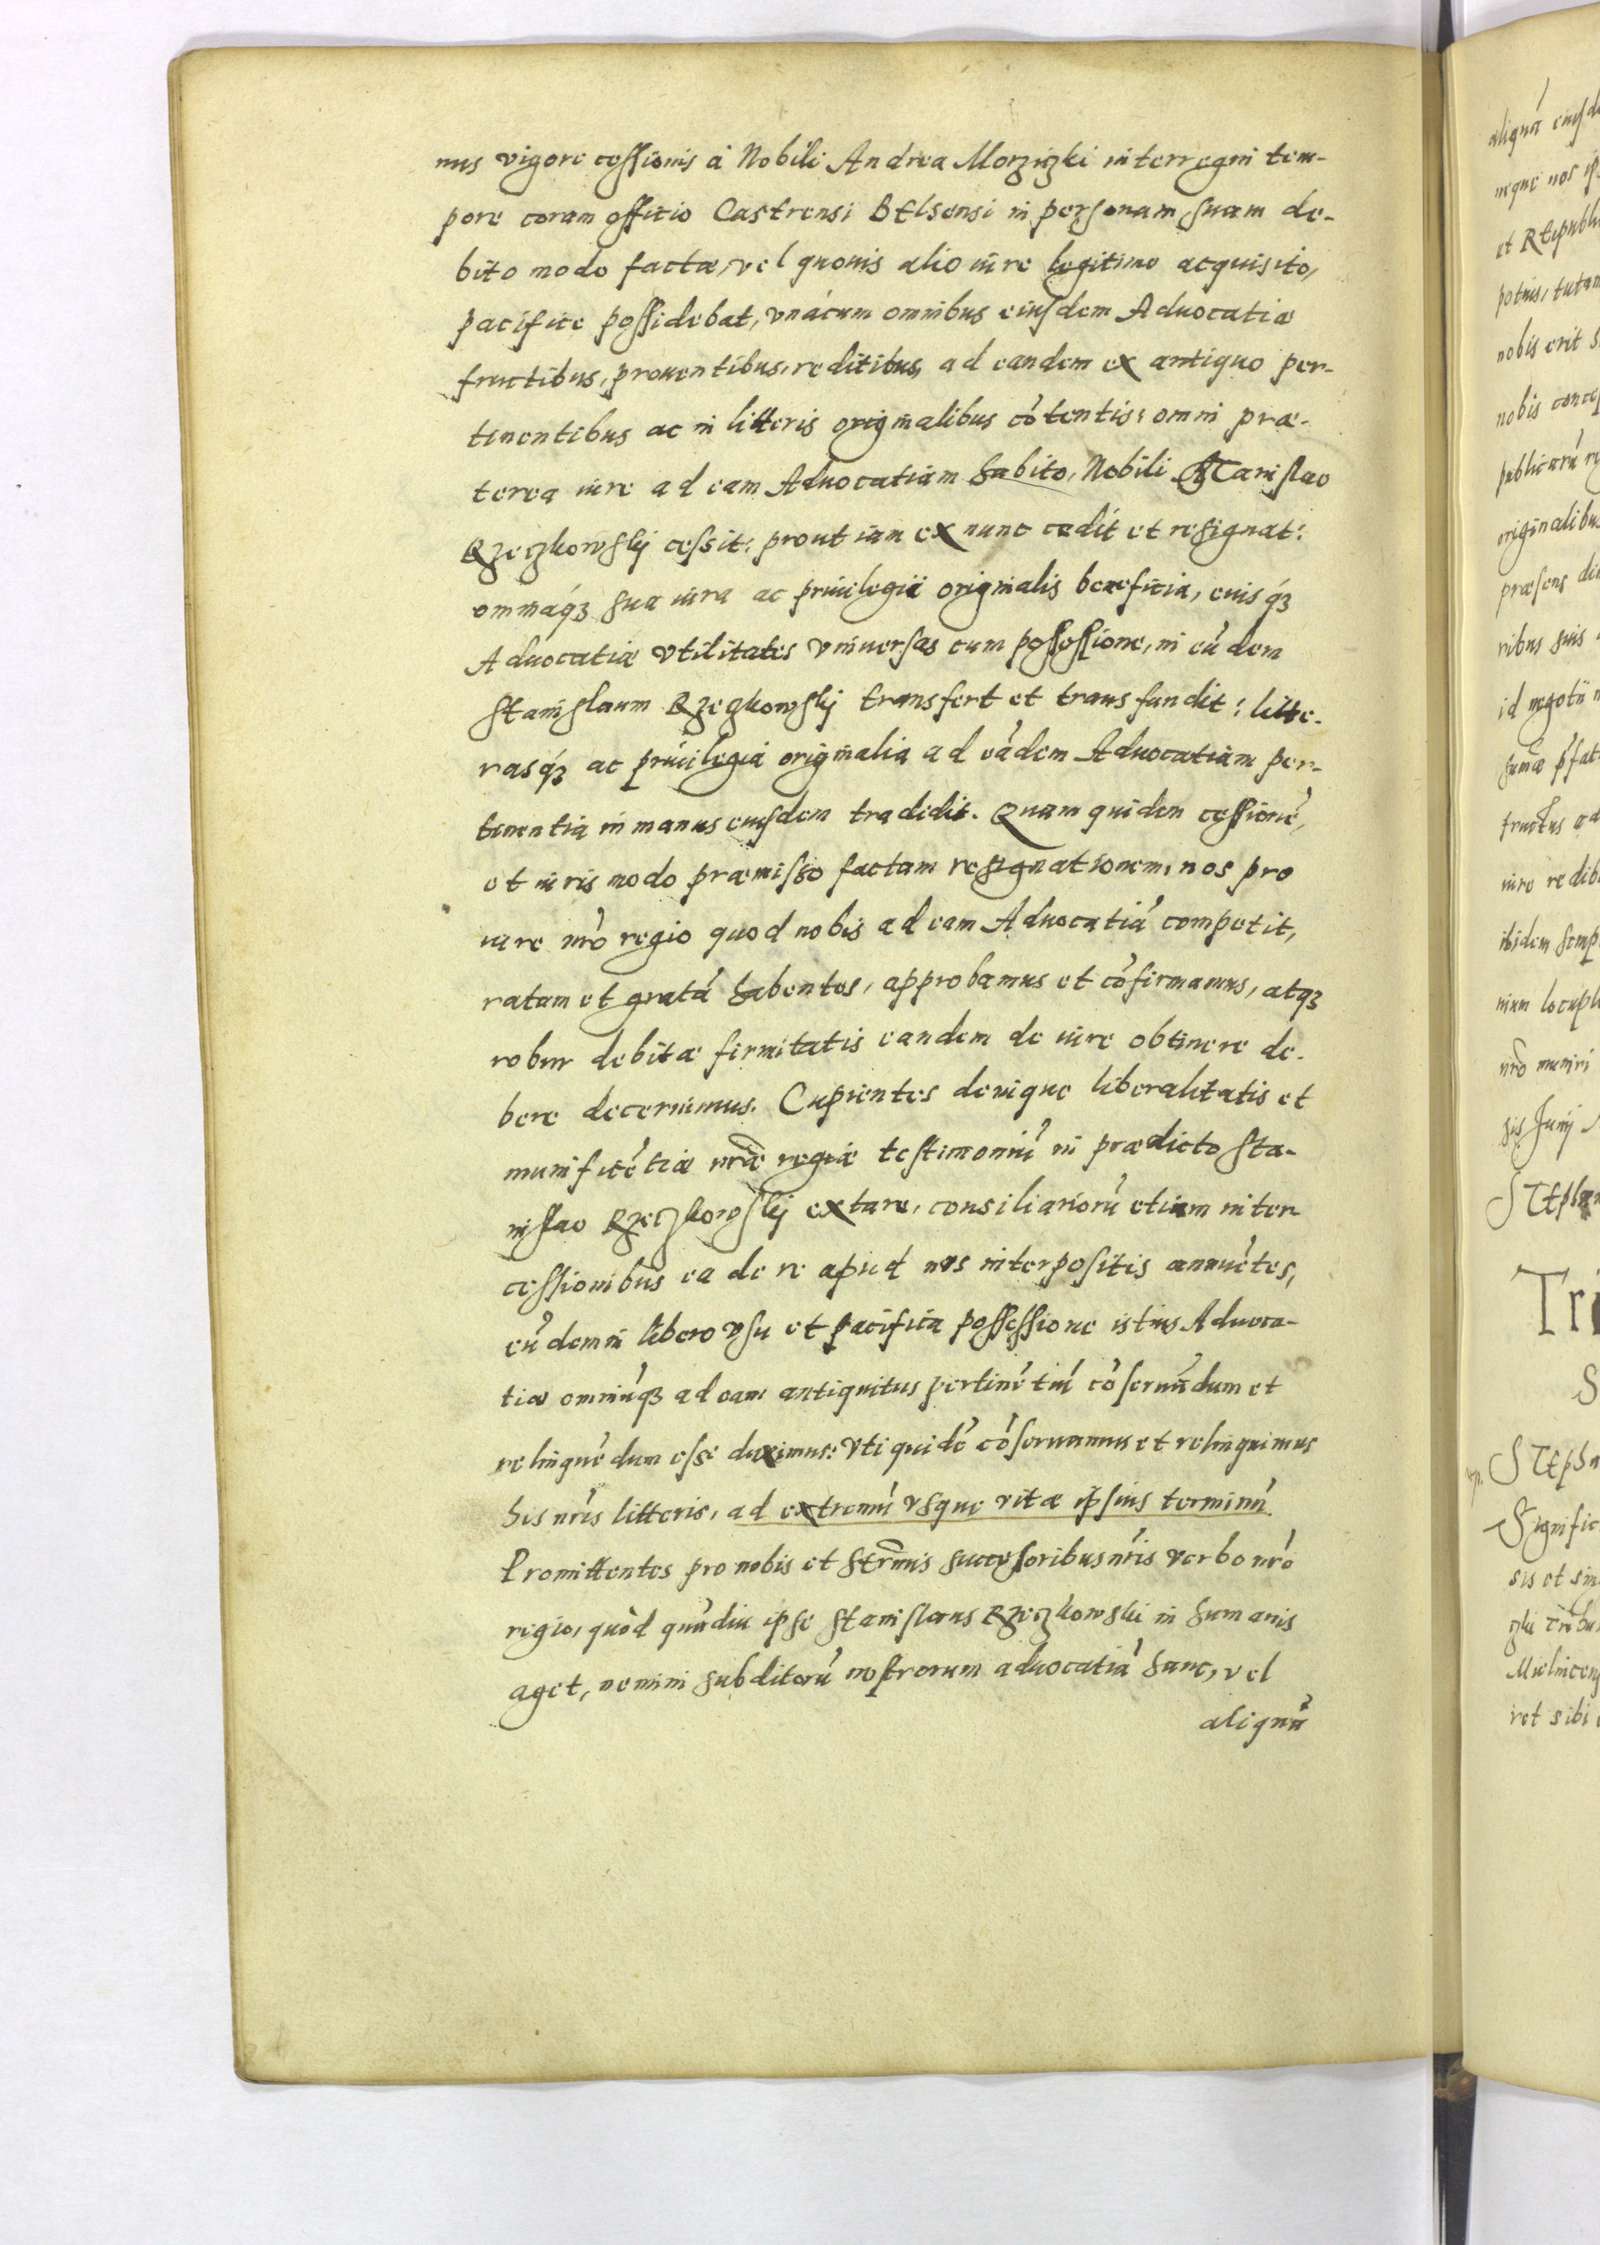 nus vigore cessionis à Nobili Andrea Morziczki interregni tem-
pore coram officio Castrensi Belsensi in personam suam de-
bito modo factæ, vel quouis alio iure legitimo acquisito,
pacifice possidebat, vnácum omnibus eiusdem Aduocatiæ
fructibus, prouentibus, reditibus, ad eandem ex antiquo per-
tinentibus ac in litteris originalibus cōtentis: omni præ-
terea iure ad eam Aduocatiam habito, Nobili Stanislao
Rzeczkowskij cessit: prout iam ex nunc cedit et resignat:
omniaq́ꝫ sua iura ac priuilegii originalis beneficia, euisq́ꝫ
Aduocatiæ vtilitates vniuersas cum possessione, in eūdem
Stanislaum Rzeczkowskij transfert et transfundit: litte-
rasq́ꝫ ac priuilegia originalia ad eādem Aduocatiam per-
tinentia in manus eiusdem tradedit. Quam quidem cessionē,
et iuris modo præmisso factam resignationem, nos pro
iure nr̄o regio quod nobis ad eam Aduocatiā competit,
ratam et gratā habentes, approbamus et cōfirmamus, atqꝫ
robur debitæ firmitatis eandem de iure obtinere de-
bere decernimus. Cupientes denique liberalitatis et
munificētiæ nr̄æ regiæ testimoniū in prædicto Sta-
nislao Rzeczkowskij extare, consiliariorū etiam inter-
cessionibus ea de re apud nos interpositis annuētes,
eūdem in libero vsu et pacifica possessione istius Aduoca-
tiæ omniūqꝫ ad eam antiquitus pertinētiū cōseruādum et
relinquēdum esse duximus: vti quidē cōseruamus et relinquimus
his nr̄is litteris, ad extremū vsque vitæ ipsius terminū.
Promittentes pro nobis et Ser̄mis successoribus nr̄is verbo nr̄o
regio, quòd quādiu ipse Stanislaus Rzeczkowski in humanis
aget, nemini subditorū nostrorum aduocatiā hanc, vel
aliquā